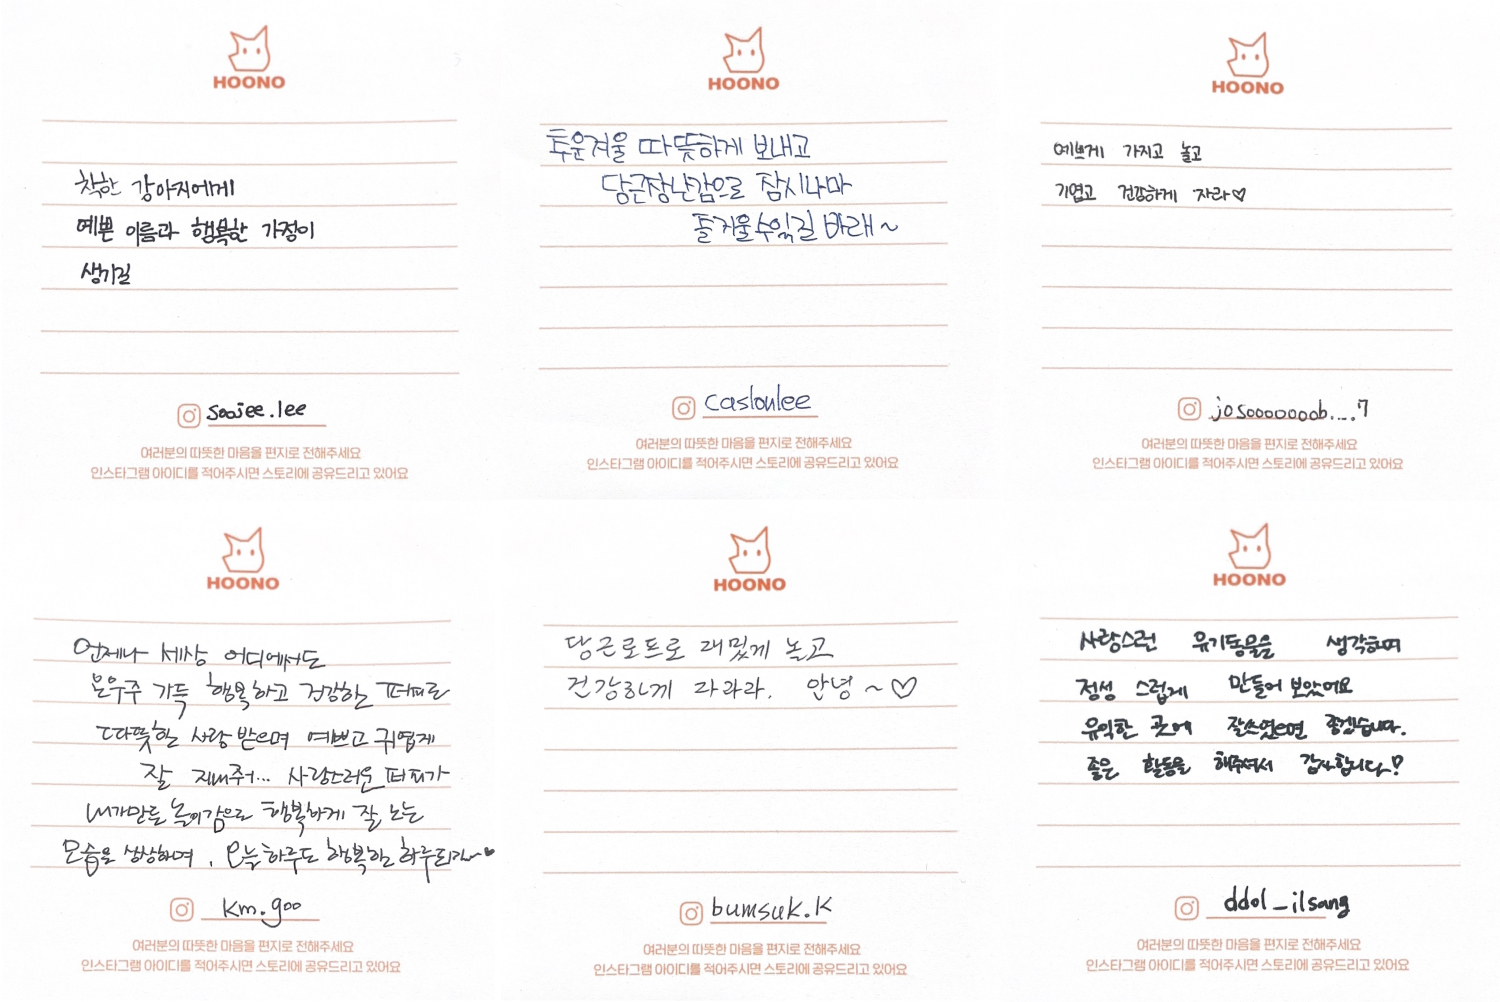 HOONO
착한 강아지에게
예쁜 이름과 행복한 가정이
생기길
soojee.lee
여러분의 따뜻한 마음을 편지로 전해주세요
인스타그램 아이디를 적어주시면 스토리에 공유드리고 있어요
HOONO
추운겨울 따뜻하게 보내고
당근장난감으로 잠시나마
즐거울수있길 바래~
casloulee
여러분의 따뜻한 마음을 편지로 전해주세요
인스타그램 아이디를 적어주시면 스토리에 공유드리고 있어요
HOONO
예쁘게 가지고 놀고
기엽고 건강하게 자라♡
josooooooob....7
여러분의 따뜻한 마음을 편지로 전해주세요
인스타그램 아이디를 적어주시면 스토리에 공유드리고 있어요
HOONO
언제나 세상 어디에서도
온우주 가득 행복하고 건강한 퍼피로
따뜻한 사랑 받으며 예쁘고 귀엽게
잘 지내줘... 사랑스러운 퍼피가
내가만든 놀이감으로 행복하게 잘 노는
모습을 상상하며, 오늘하루도 행복한 하루되길~♥
km.goo
여러분의 따뜻한 마음을 편지로 전해주세요
인스타그램 아이디를 적어주시면 스토리에 공유드리고 있어요
HOONO
당근로트로 재밌게 놀고
건강하게 자라라. 안녕~♡
bumsuk.k
여러분의 따뜻한 마음을 편지로 전해주세요
인스타그램 아이디를 적어주시면 스토리에 공유드리고 있어요
HOONO
사랑스런 유기동물을 생각하며
정성 스럽게 만들어 보았어요
유익한 곳에 잘쓰였으면 좋겠습니다.
좋은 활동을 해주셔서 감사합니다!
ddol_ilsang
여러분의 따뜻한 마음을 편지로 전해주세요
인스타그램 아이디를 적어주시면 스토리에 공유드리고 있어요